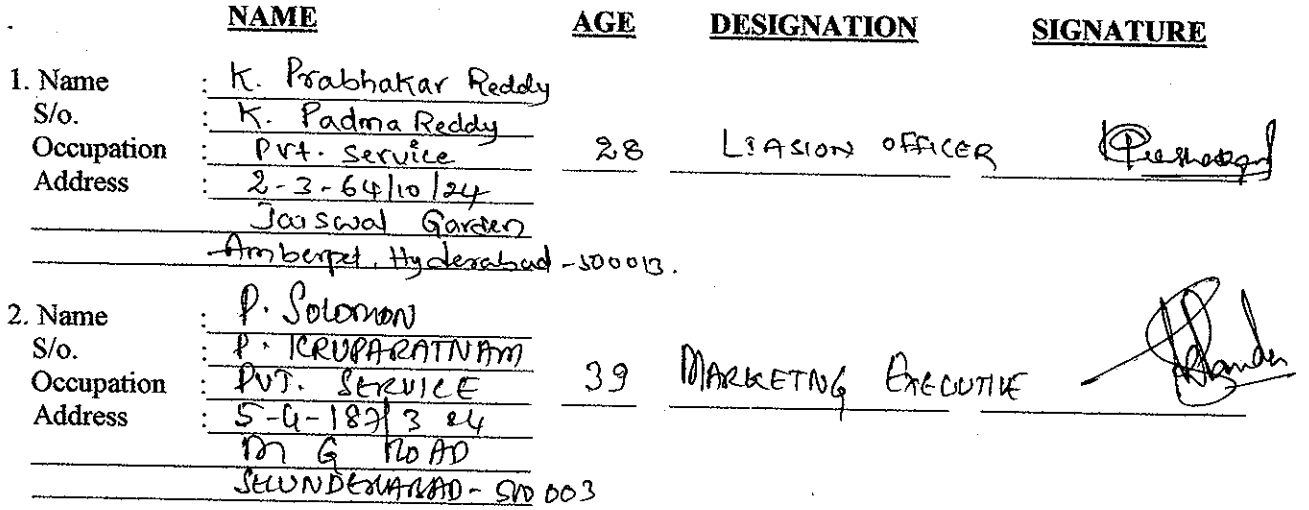 NAME AGE DESIGNATION SIGNATURE
1. Name : K. Prabhakar Reddy
S/o. : K. Padma Reddy
Occupation : Pvt. Service 28 LIASION OFFICER
Address : 2-3-64/10/24
Jaiswal Garden
Amberpet, Hyderabad - 500013.
2. Name : P. Solomon
S/o. : P. KRUPARATNAM
Occupation : PVT. SERVICE 39 MARKETNG EXECUTIVE
Address : 5-4-187/3 &4
M G ROAD
SECUNDERABAD - 500 003